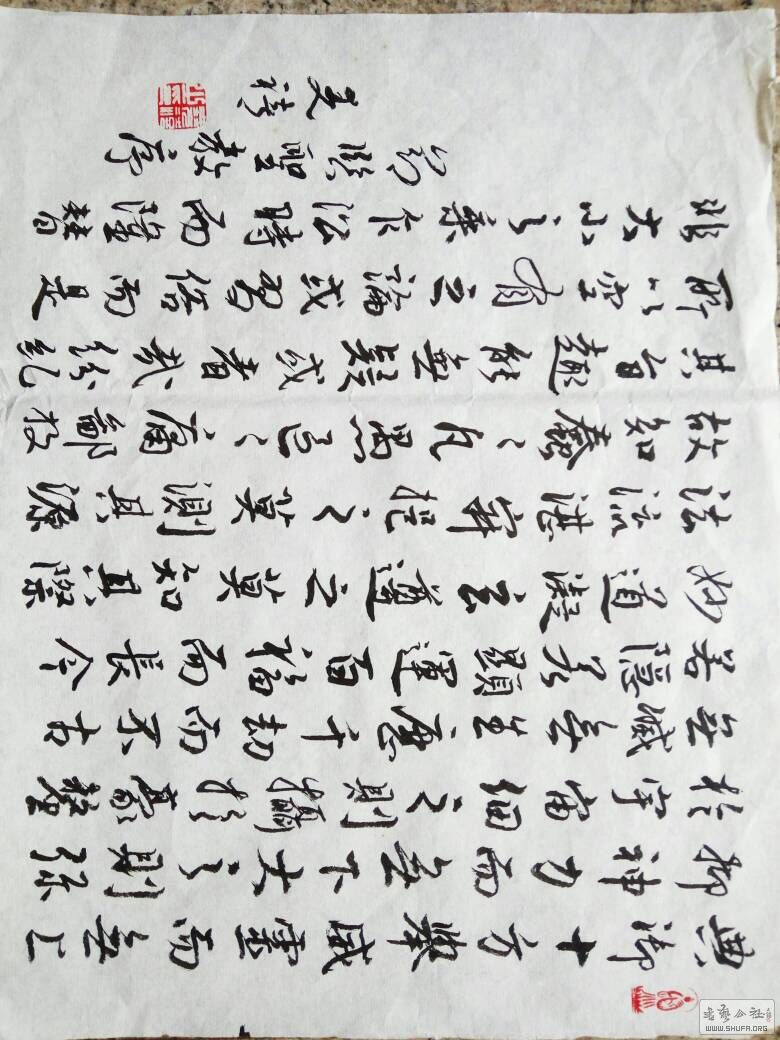 典御十方舉威靈而無上
抑神力而無下大之則彌
於宇宙細之則攝於豪釐
無滅無生歷千劫而不古
若隱若顯運百福而長今
妙道凝玄遵之莫知其際
法流湛寂挹之莫測其源
故知蠢〻凡愚區〻庸鄙投
其旨趣能無疑或者哉紛糺
所以空有之論或習俗而是
非大小之乘乍沿時而隆替
節臨聖教序
WWW.SHUFA.ORG